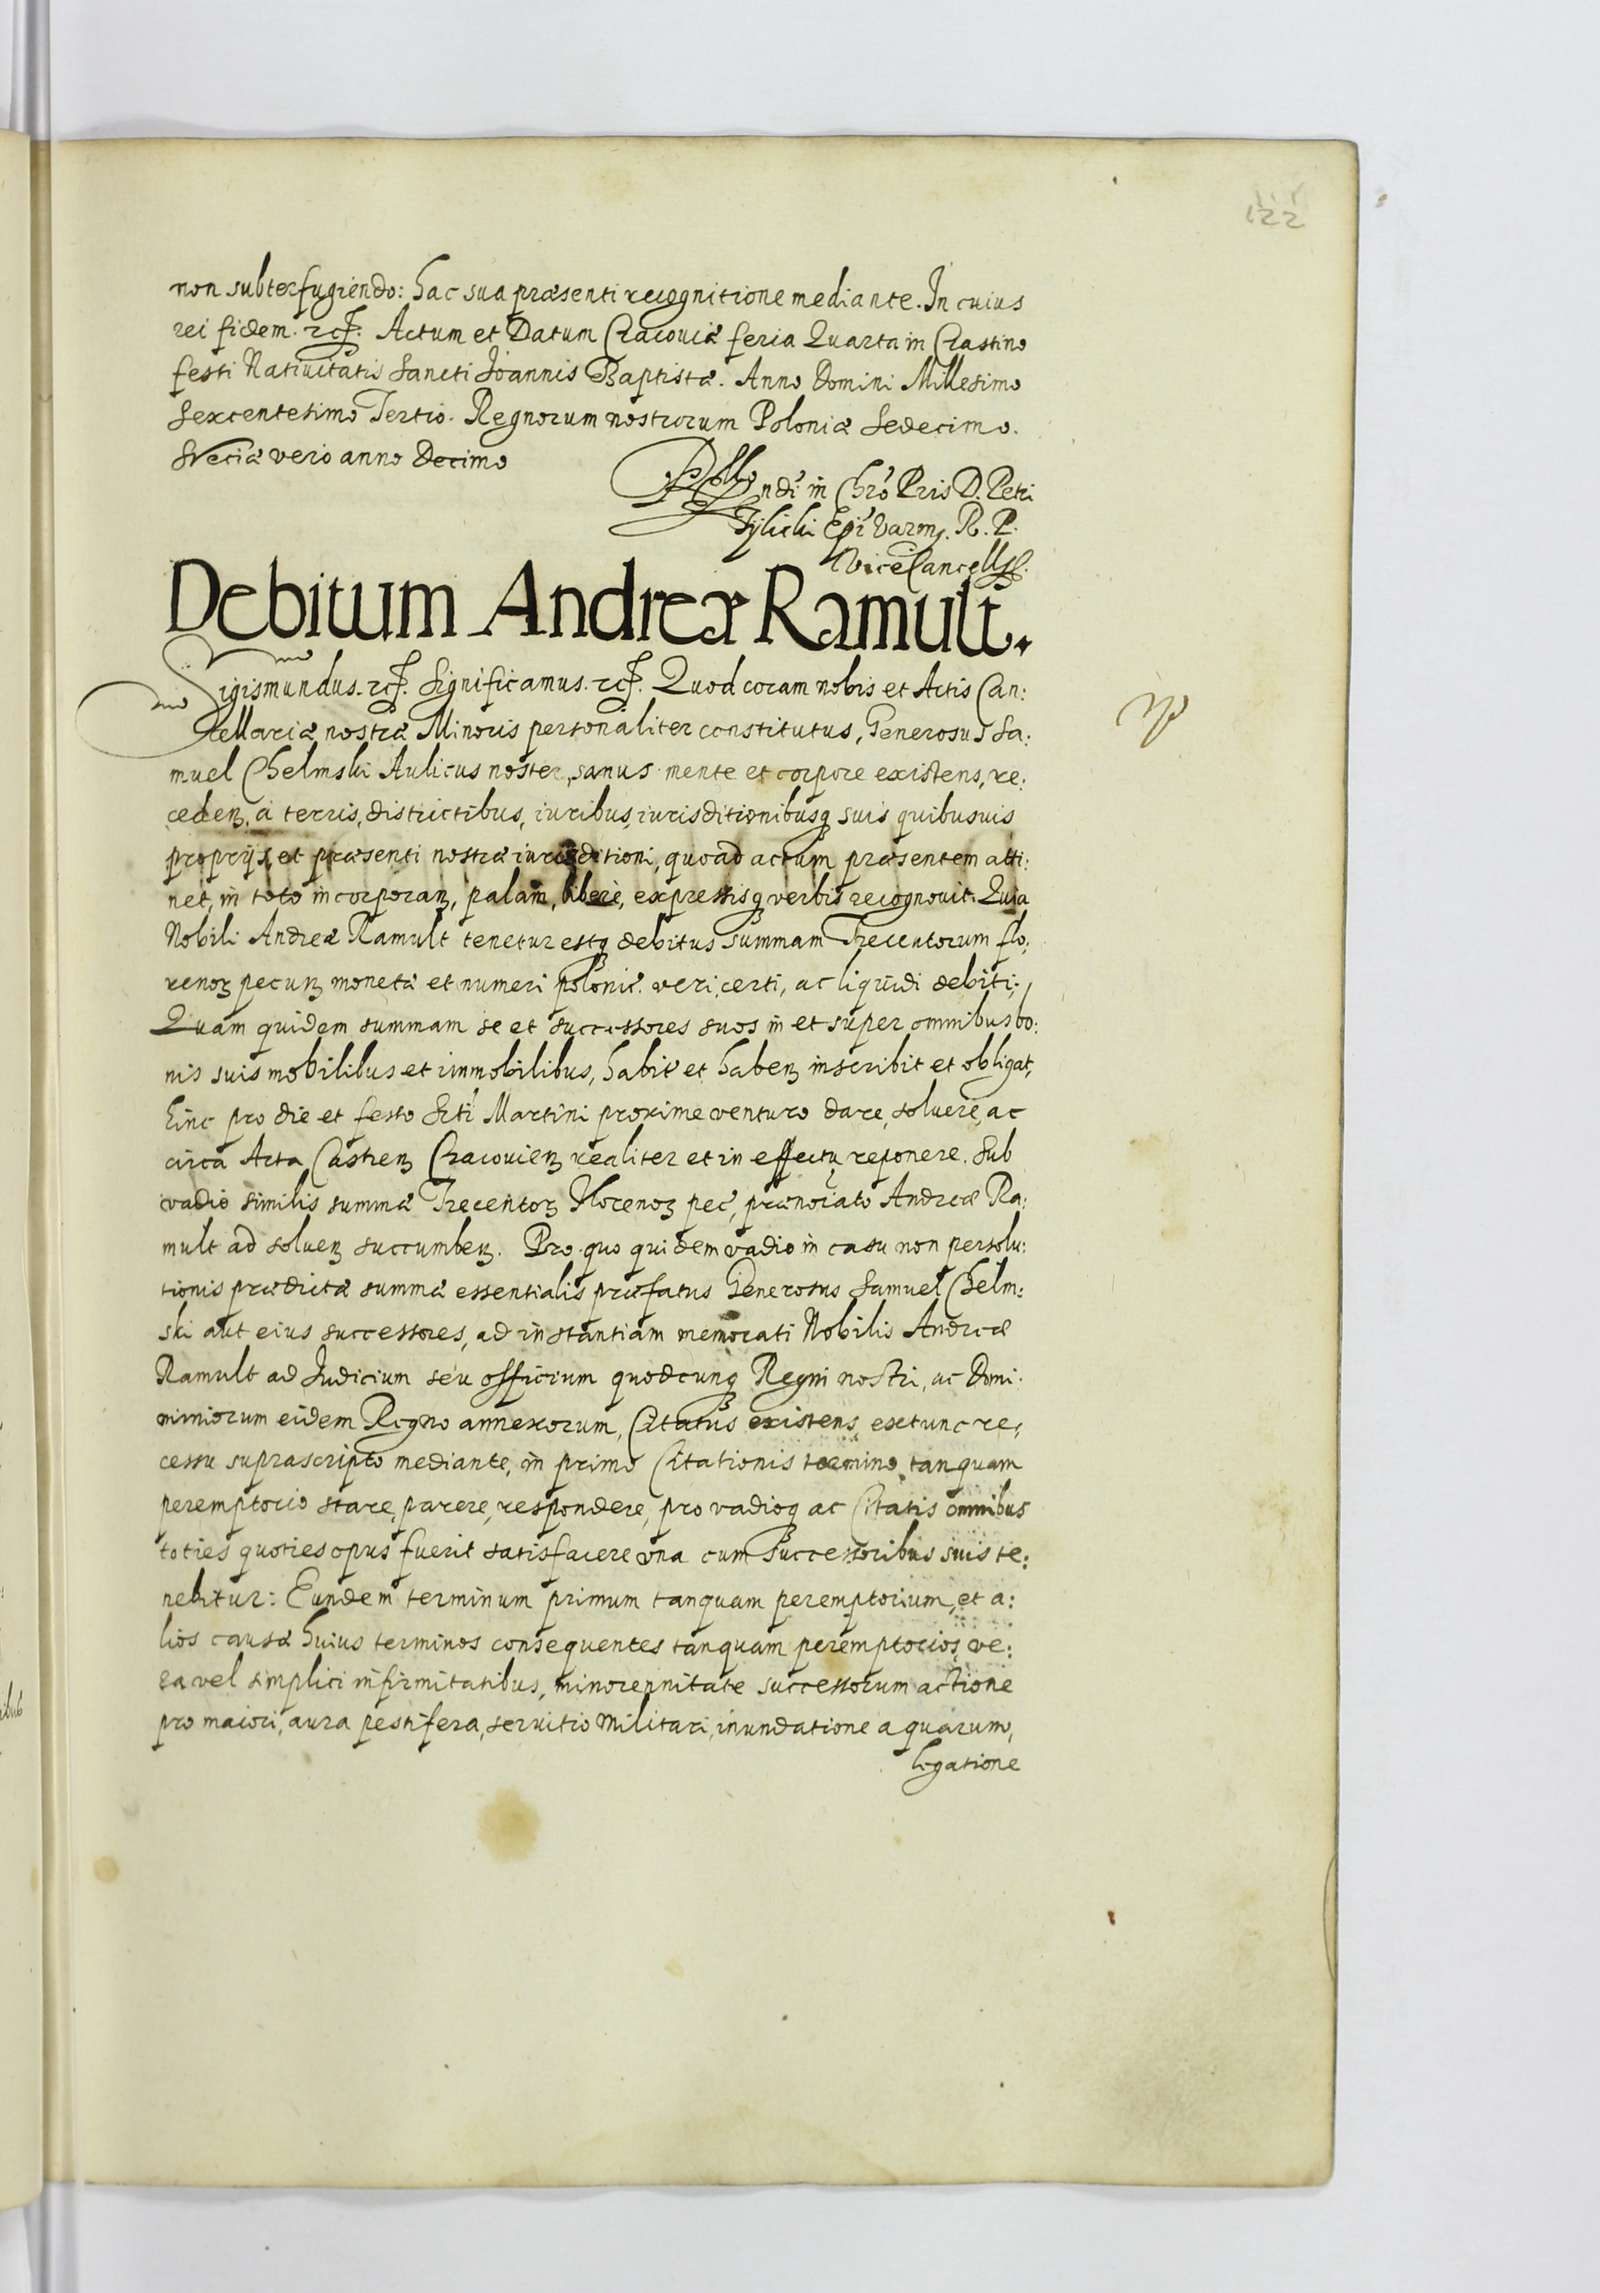 122
non subterfugiendo: hac sua præsenti recognitione mediante. In cuius
rei fidem. etc. Actum et Datum Cracouiæ feria Quarta in Crastino
festi Natiuitatis Sancti Joannis Baptistæ. Anno Domini Millesimo
Sexcentesimo Tertio. Regnorum nostrorum Poloniæ Sedecimo.
Sveciæ vero anno Decimo
ndi in Chro Pris D. Petri
Tylicki Epi Varm. R. P.
ViceCancell
Debitum Andreæ Ramult.
Sigismundus. etc. Significamus. etc. Quod coram nobis et Actis Can:
cellariæ nostræ Minoris personaliter constitutus, Generosus Sa:
muel Chelmski Aulicus noster, sanus mente et corpore existens, re:
cedenꝫ. a terris, districtibus, iuribus, iurisditionibusqꝫ suis quibusuis
proprijs, et præsenti nostræ iurisditioni, quoad actum præsentem atti:
net, in toto incorporanꝫ, palam, libere, expressisqꝫ verbis recognouit. Quia
Nobili Andreæ Ramult tenetur estqꝫ debitus summam Trecentorum flo:
renoꝝ pecunꝫ monetæ et numeri polonic. veri, certi, ac liquidi debiti;
Quam quidem summam se et successores suos in et super omnibus bo:
nis suis mobilibus et immobilibus, habit et habenꝫ inscribit et obligat,
hinc pro die et festo Scti Martini proxime venturo dare, soluere, ac
circa Acta Castrenꝫ Cracouienꝫ realiter et in effectu reponere. Sub
vadio similis summæ Trecentoꝝ Florenoꝝ pec, prænotato Andreæ Ra:
mult ad soluenꝫ succumbenꝫ. Pro quo quidem vadio in casu non persolu:
tionis prædictæ summæ essentialis præfatus Generosus Samuel Chelm:
ski aut eius successores, ad instantiam memorati Nobilis Andreæ
Ramult ad Judicium seu officium quodcunqꝫ Regni nostri, ac Domi:
niniorum eidem Regno annexorum, Citatus existens, extunc re:
cessu suprascripto mediante, in primo Citationis termino tanquam
peremptorio stare, parere, respondere, pro vadioqꝫ ac Citatis omnibus
toties quoties opus fuerit satisfacere vna cum successoribus suis te:
nebitur: Eundem terminum primum tanquam peremptorium, et a:
lios causæ huius terminos consequentes tanquam peremptorios, ve:
ra vel simplici infirmitatibus, minorennitate successorum actione
pro maiori, aura pestifera, seruitio militari, inundatione aquarum,
legatione